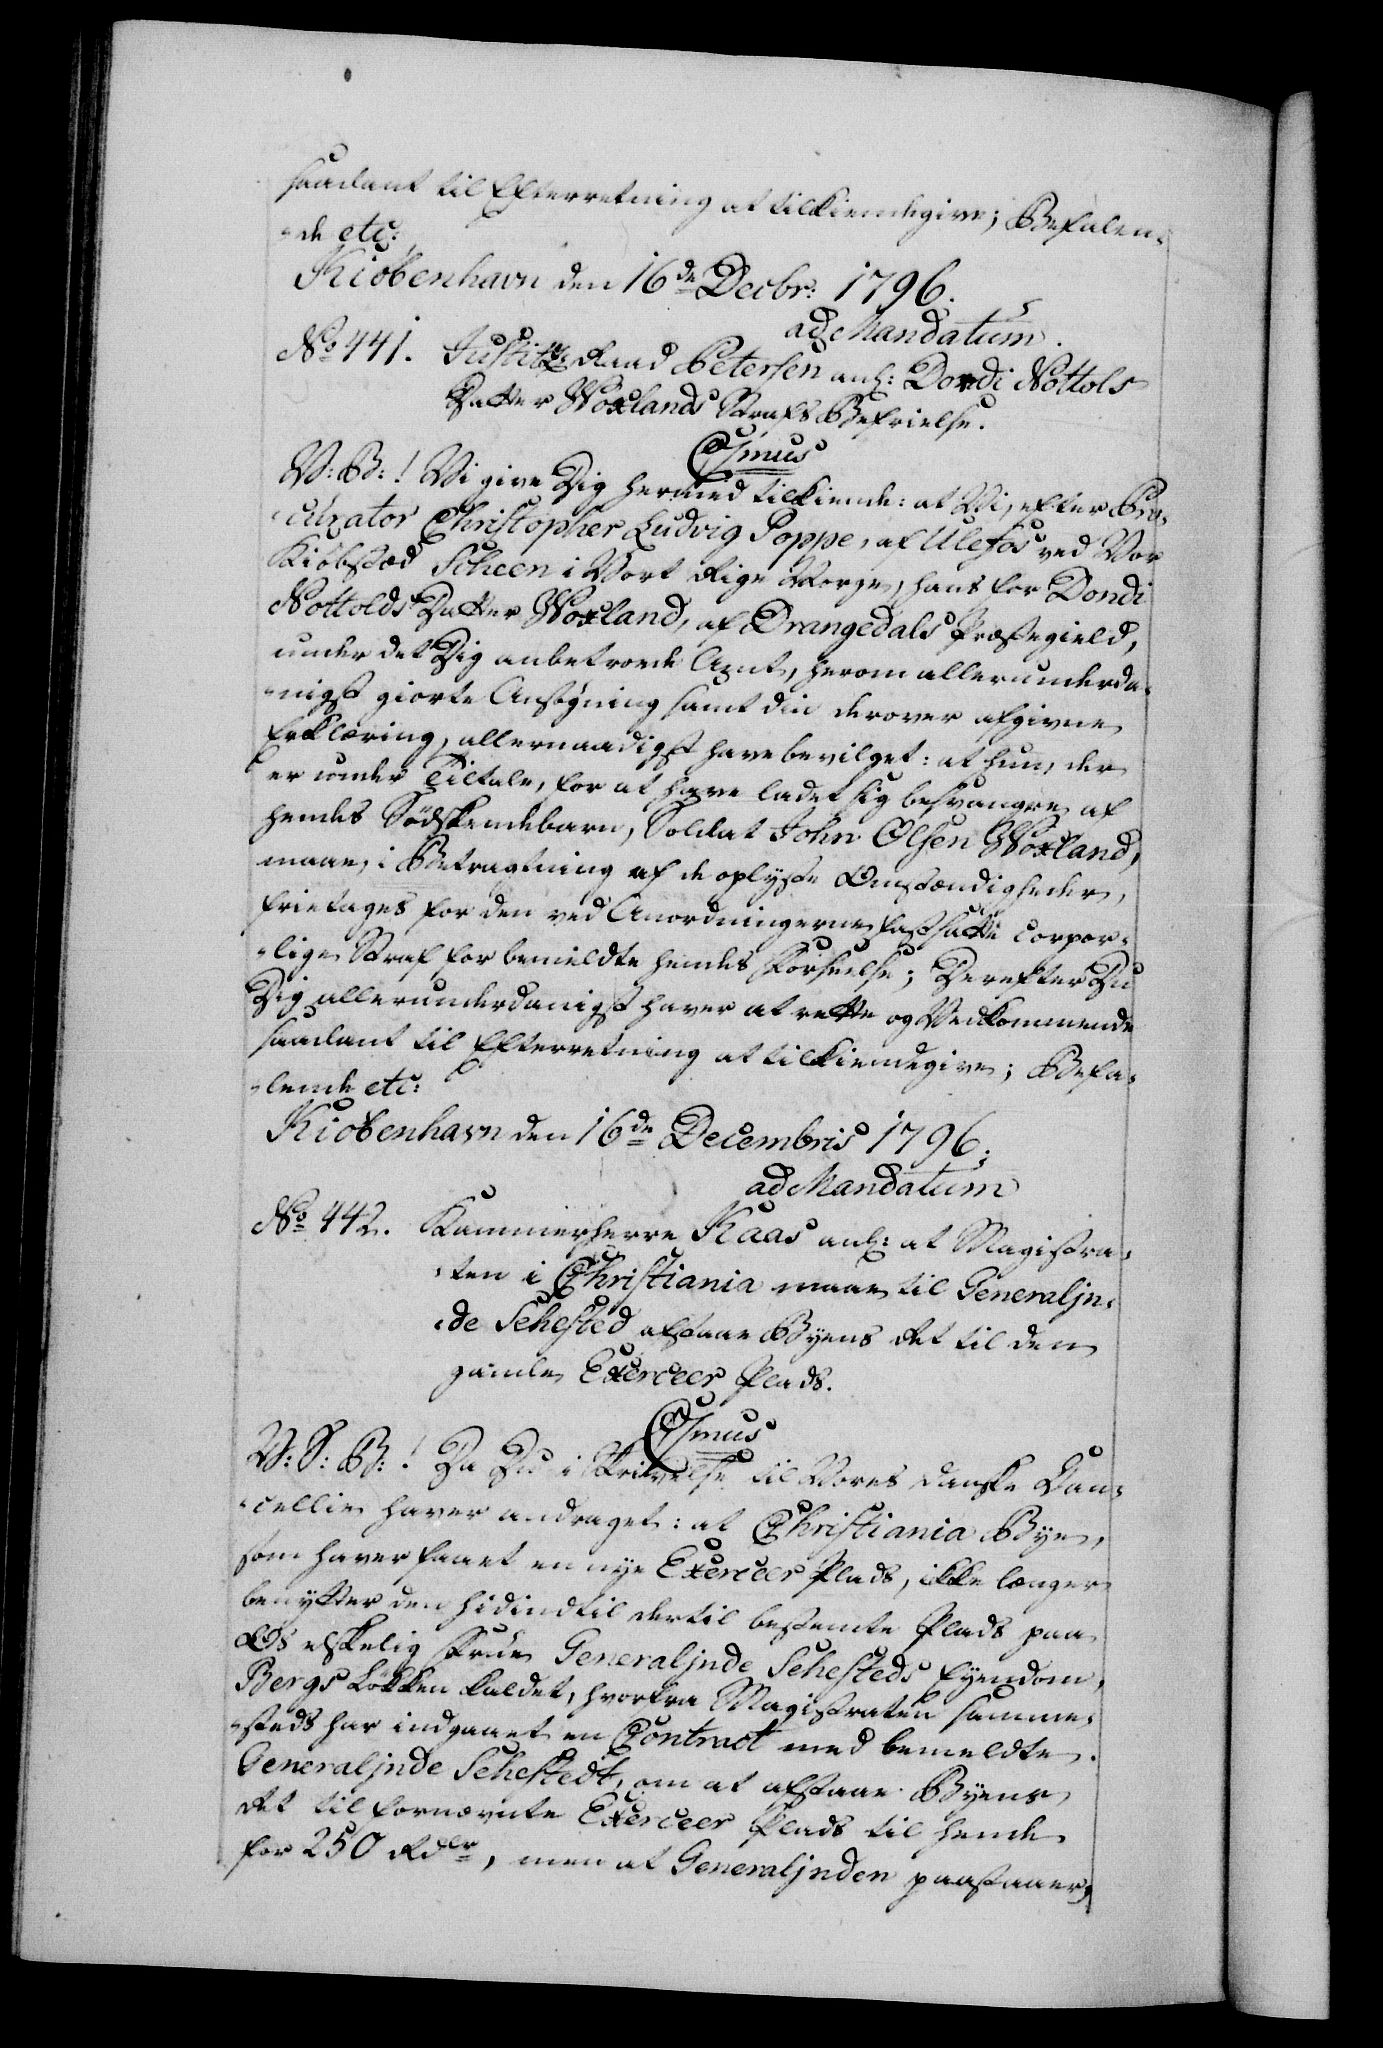 saadant til Efterretning at tilkiendegive; Befalen-
-de etc:
Kiöbenhavn den 16de Decbr: 1796.
ad Mandatum.
No 441. Justitz Raad Petersen anl: Dondi Nottols
Datter Woxlands Strafs Befrielse.
CSmus
V: B:! Vi give Dig hermed tilkiende: at Vi, efter Pro-
-curator Christopher Ludvig Poppe, af Ulefos ved Vor
Kiöbstæd Scheen i Vort Rige Norge, hans for Dondi
Nottolds Datter Woxland, af Drangedals Præstegield,
under det Dig anbetroede Amt, herom allerunderda-
-nigst giorte Ansøgning samt din derover afgivne
Erklæring, allernaadigst have bevilget: at hun, der
er under Tiltale, for at have ladet sig besvangre af
hendes Södskendebarn, Soldat John Olsen Woxland,
maae, i Betragtning af de oplyste Omstændigheder,
fritages for den ved Anordningerne fastsatte corpor-
-lige Straf for bemeldte hendes Forseelse; Derefter Du
Dig allerunderdanigst haver at rette og Vedkommende
saadant til Efterretning at tilkiendegive; Befa-
-lende etc:
Kiöbenhavn den 16de Decembris 1796.
ad Mandatum
No 442. Kammerherre Kaas anl: at Magistra-
-ten i Christiania maae til Generalin-
-de Sehested afstaae Byens Ret til den
gamle Exerceer Plads.
CSmus
V: S: B:! Da Du i Skrivelse til Vores danske Can-
-cellie haver andraget: at Christiania Bye,
som haver faaet en nye Exerceer Plads, ikke længer
benytter den hidindtil dertil bestemte Plads paa
Os elskelig Frue Generalinde Sehesteds Eyendom,
Bergs Lökken kaldet, hvorfra Magistraten samme-
-steds har indgaaet en Contract med bemeldte
Generalinde Sehestedt, om at afstaae Byens
Ret til fornævnte Exerceer Plads til hende
for 250 Rdlr, men at Generalinden paastaaer,